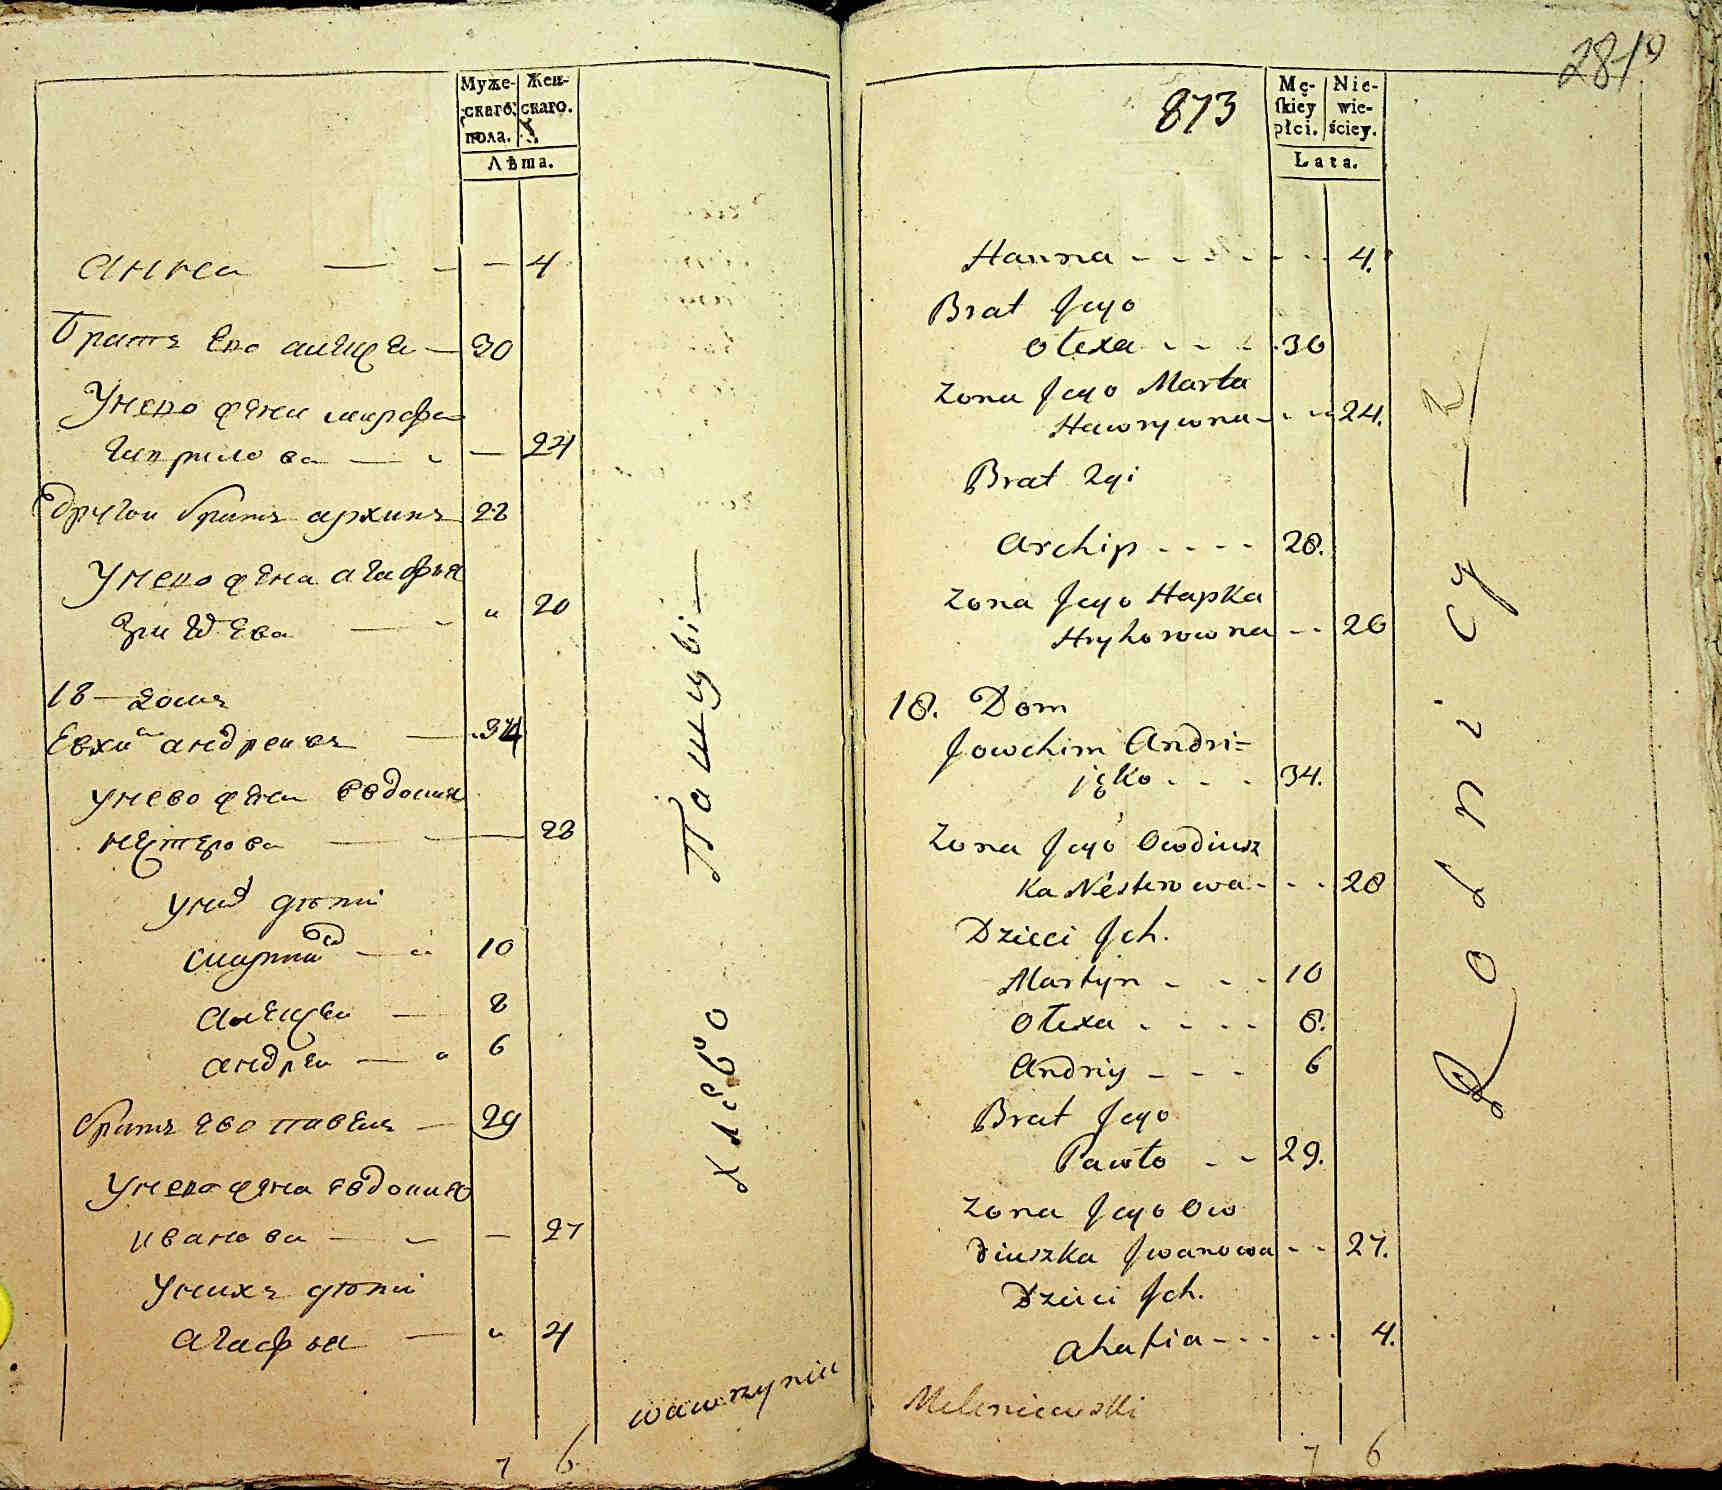 Муже- Жен-
скаго. скаго.
пола.
Лѣта.
анна 4
братъ ево алеѯеи 30
У нево жена марфа
гаврилова 24
Другои братъ архипъ 28
У нево жена агафья
20
18 домъ
Евхим андреивъ 34
У нево жена евдокия
нестерова 28
У них дѣти
мартин 10
алексеи 8
андреи 6
братъ ево павелъ 29
У нево жена евдокия
иванова 27
У нихъ дѣти
агафья 4
хлебо пашцы
wawrzyniec
7 6
2819
873
Mę- Nie-
ſkiey wie-
płci. ściey.
Lata.
Hanna 4.
Brat Jego
Ołexa 30
Zona Jego Marta
Hawrywna 24.
Brat 2gi
Archip 28.
Zona Jego Hapka
Hryhorowna 20
18. Dom
Jowchim Andri=
jęko 34.
Zona Jego Owdiusz
ka Nesterowa 28
Dzieci Jch.
Martyn 10
Ołexa 8.
Andriy 6
Brat Jego
Pawło 29.
Zona Jego Ow
diuszka Jwanowa 27.
Dzieci Jch.
Ahafia 4.
Rolnicy
Meleniewski
7 6